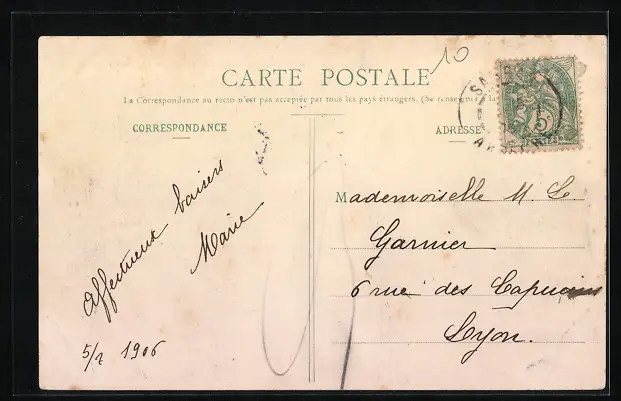 10
CARTE POSTALE
La Correspondance au recto n'est pas acceptée par tous les pays étrangers. (Se renseigner à la
CORRESPONDANCE
ADRESSE
5c
POSTES
Affectueux baisers
Marie
5/2 1906
Mademoiselle M. L.
Garnier
6 rue des Capucins
Lyon.